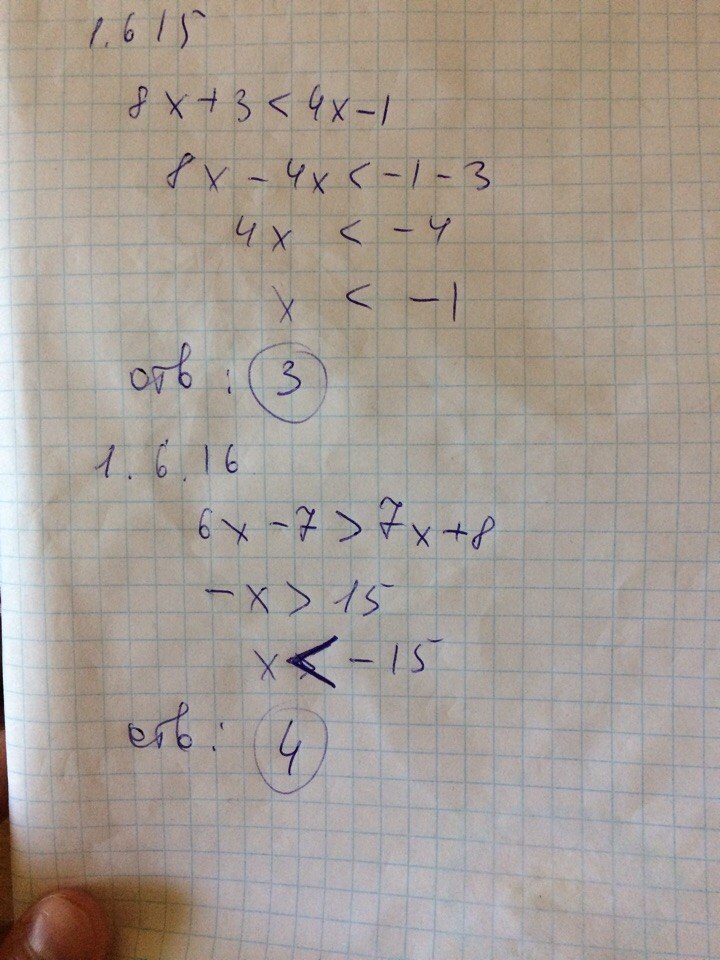 1.615
8x+3<4x-1
8x-4x<-1-3
4x < -4
x < -1
отв: 3
1.6.16
6x-7>7x+8
-x>15
x<-15
отв: 4